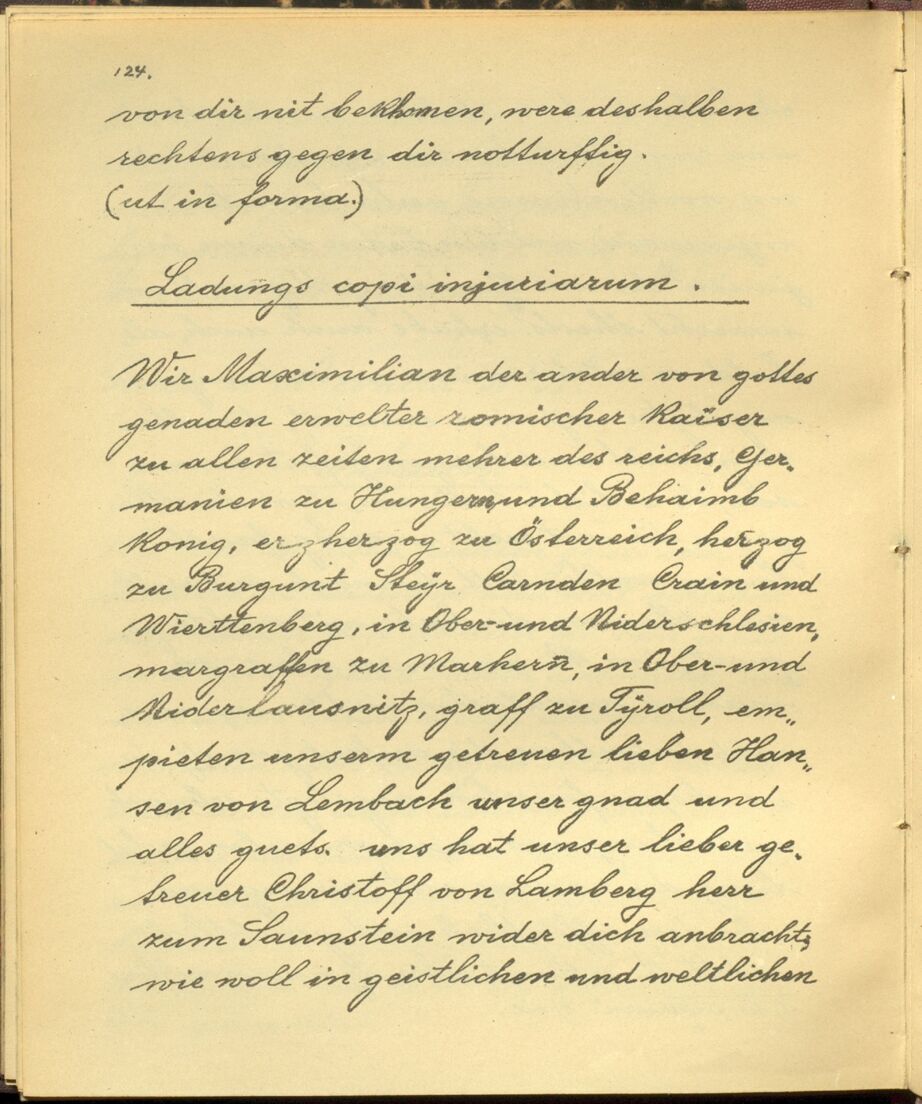 124.
von dir nit bekhomen, were deshalben
rechtens gegen dir notturfftig.
(ut in forma.)
Ladungs copi injuriarum.
Wir Maximilian der ander von gottes
genaden erwelter romischer Kaiser
zu allen zeiten mehrer des reichs, Ger-
manien zu Hungern, und Behaimb
Konig, erzherzog zu Österreich, herzog
zu Burgunt Steÿr Carnden Crain und
Wierttenberg, in Ober- und Niderschlesien,
margraffen zu Markern̄, in Ober- und
Niderlausnitz, graff zu Tÿroll, em„
pieten unserm getreuen lieben Han„
sen von Lembach unser gnad und
alles guets. uns hat unser lieber ge-
treuer Christoff von Lamberg herr
zum Saunstein wider dich anbracht,
wie woll in geistlichen und weltlichen